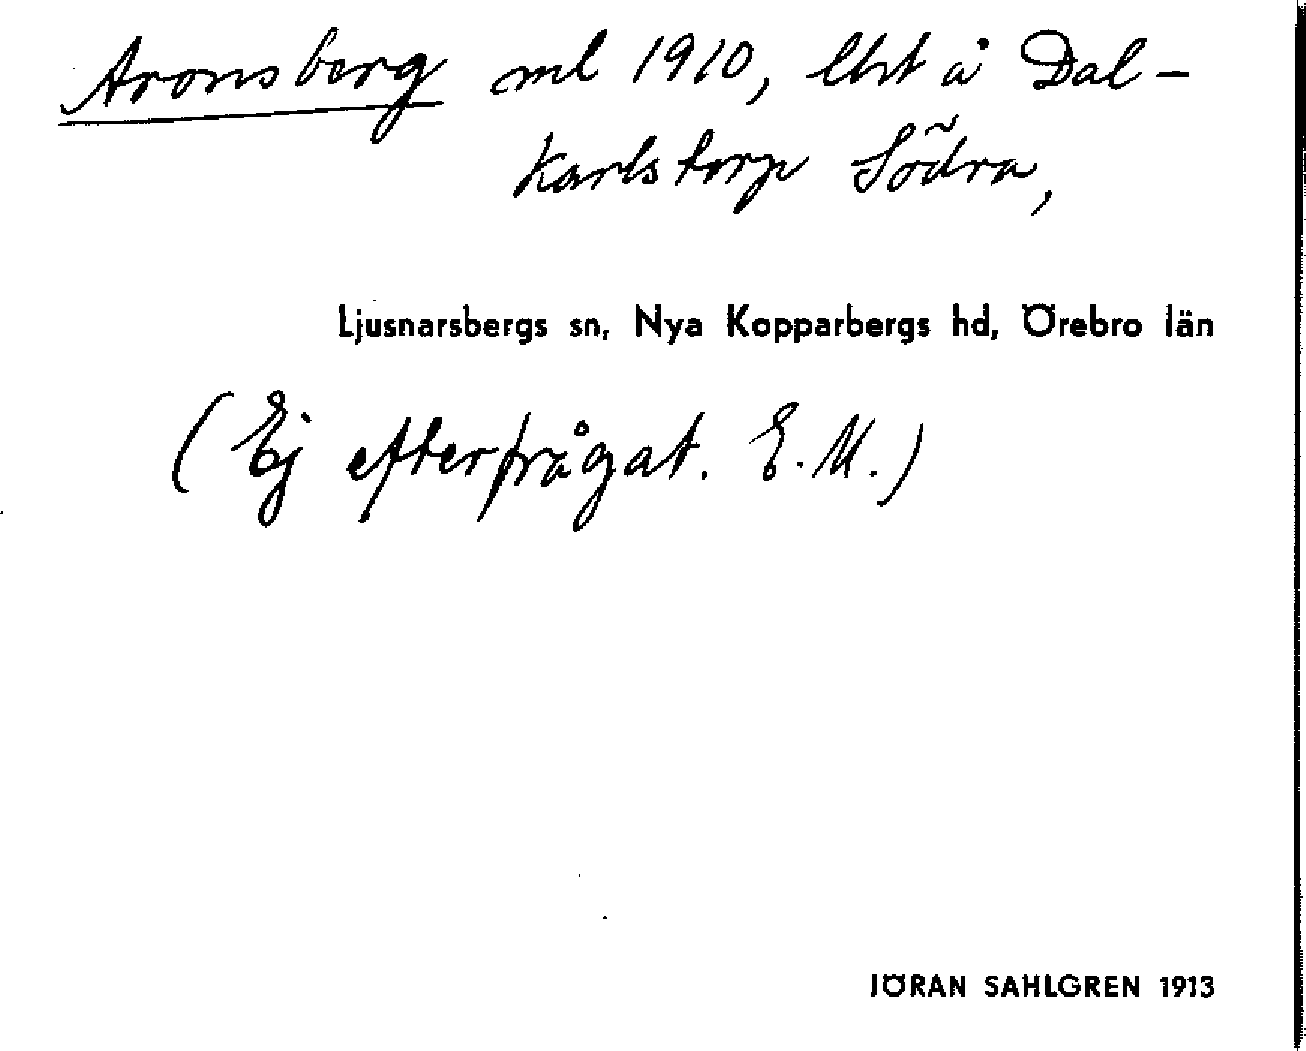 Aronsberg ml 1910, lht å Dal-
karlstorp Södra,
Ljusnarsbergs sn, Nya Kopparbergs hd, Örebro län
(Ej efterfrågat. E.M.)
JÖRAN SAHLGREN 1913